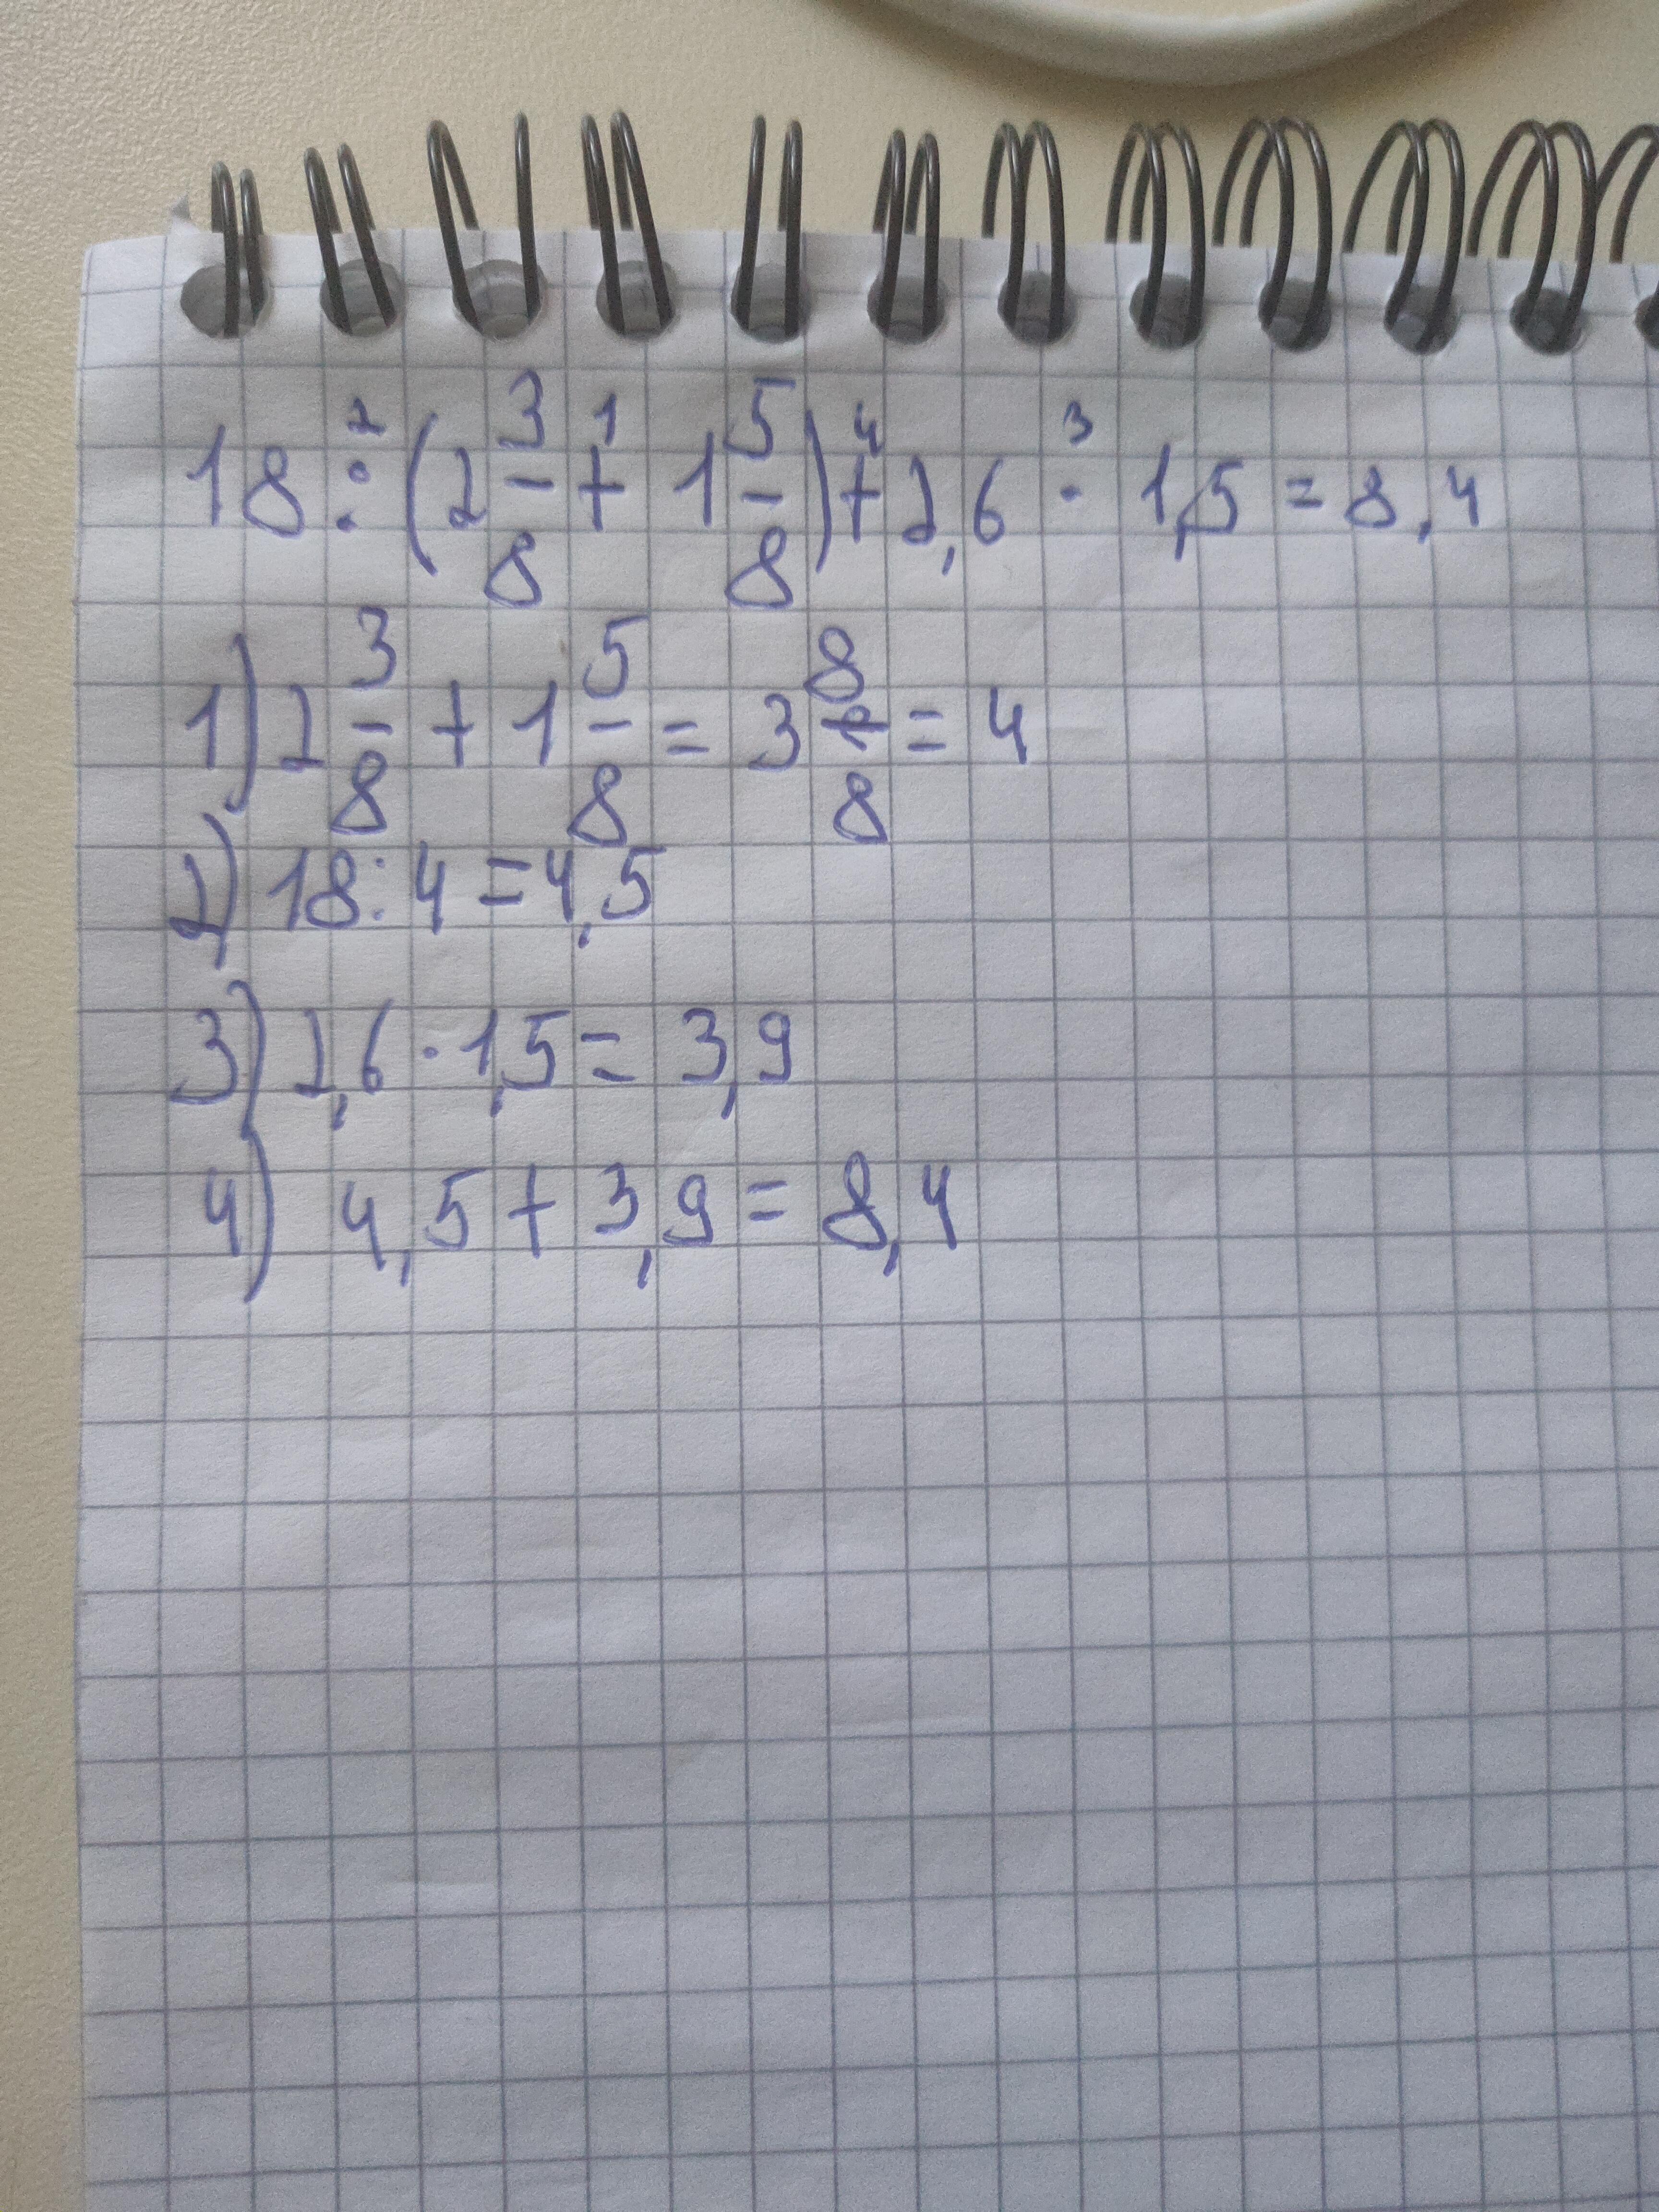 18 : (2 3/8 + 1 5/8) + 2,6 · 1,5 = 8,4
1) 2 3/8 + 1 5/8 = 3 8/8 = 4
2) 18 : 4 = 4,5
3) 2,6 · 1,5 = 3,9
4) 4,5 + 3,9 = 8,4